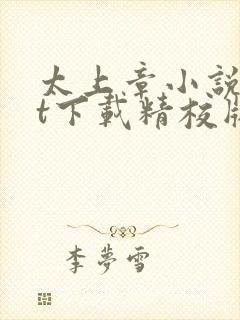 太上章小說
t下載精校版
李夢雪